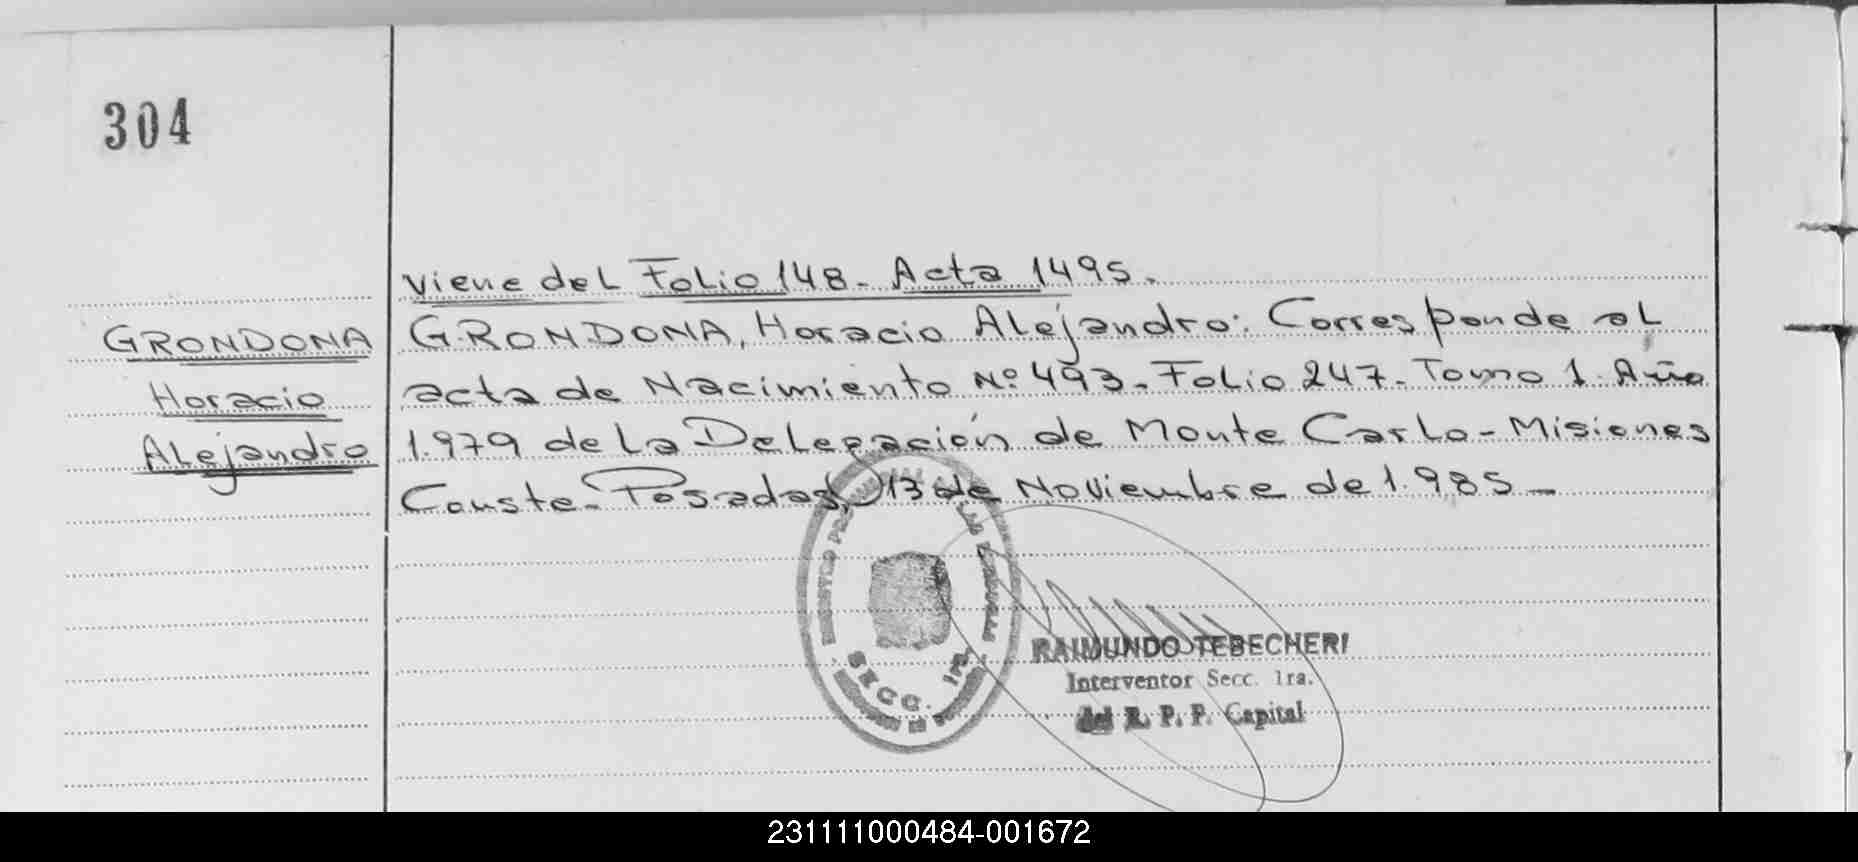 304
Viene del Folio 148. Acta 1495.
GRONDONA
Horacio
Alejandro
GRONDONA, Horacio Alejandro: Corresponde al
acta de Nacimiento Nº 493. Folio 247. Tomo 1. Año
1.979 de la Delegación de Monte Carlo - Misiones
Conste. Posadas, 13 de Noviembre de 1.985 -
SECC. 1ra.
RAIMUNDO TEBECHERI
Interventor Secc. 1ra.
del R. P. P. Capital
231111000484-001672